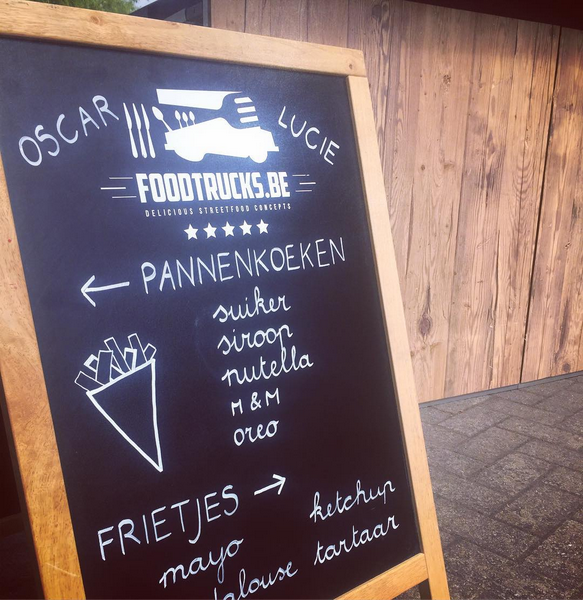 OSCAR LUCIE
FOODTRUCKS.BE
DELICIOUS STREETFOOD CONCEPTS
← PANNENKOEKEN
suiker
siroop
nutella
M & M
oreo
FRIETJES →
mayo ketchup
tartaar